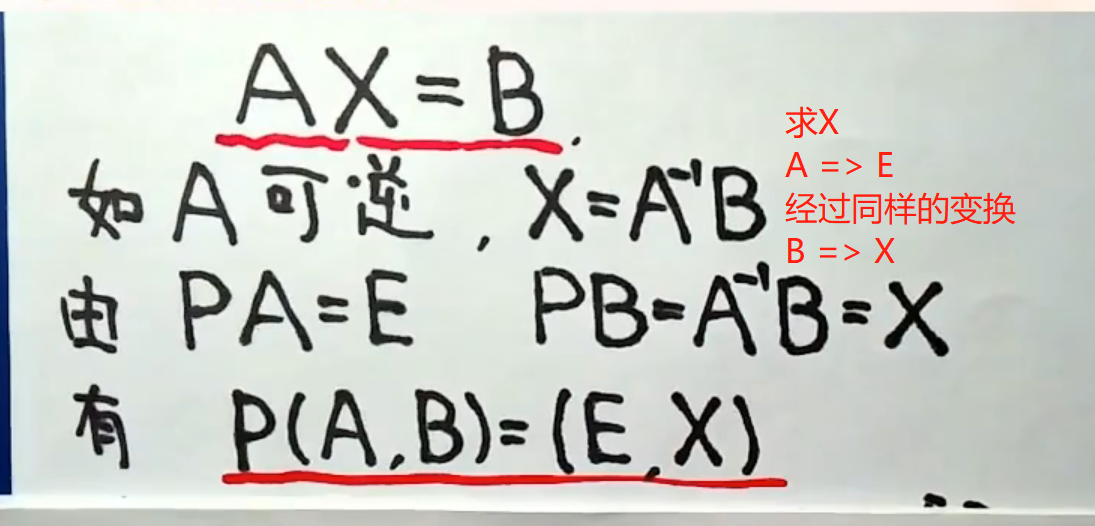 AX=B.
如A可逆, X=A⁻¹B
由 PA=E PB=A⁻¹B=X
有 P(A,B)=(E,X)
求X
A => E
经过同样的变换
B => X